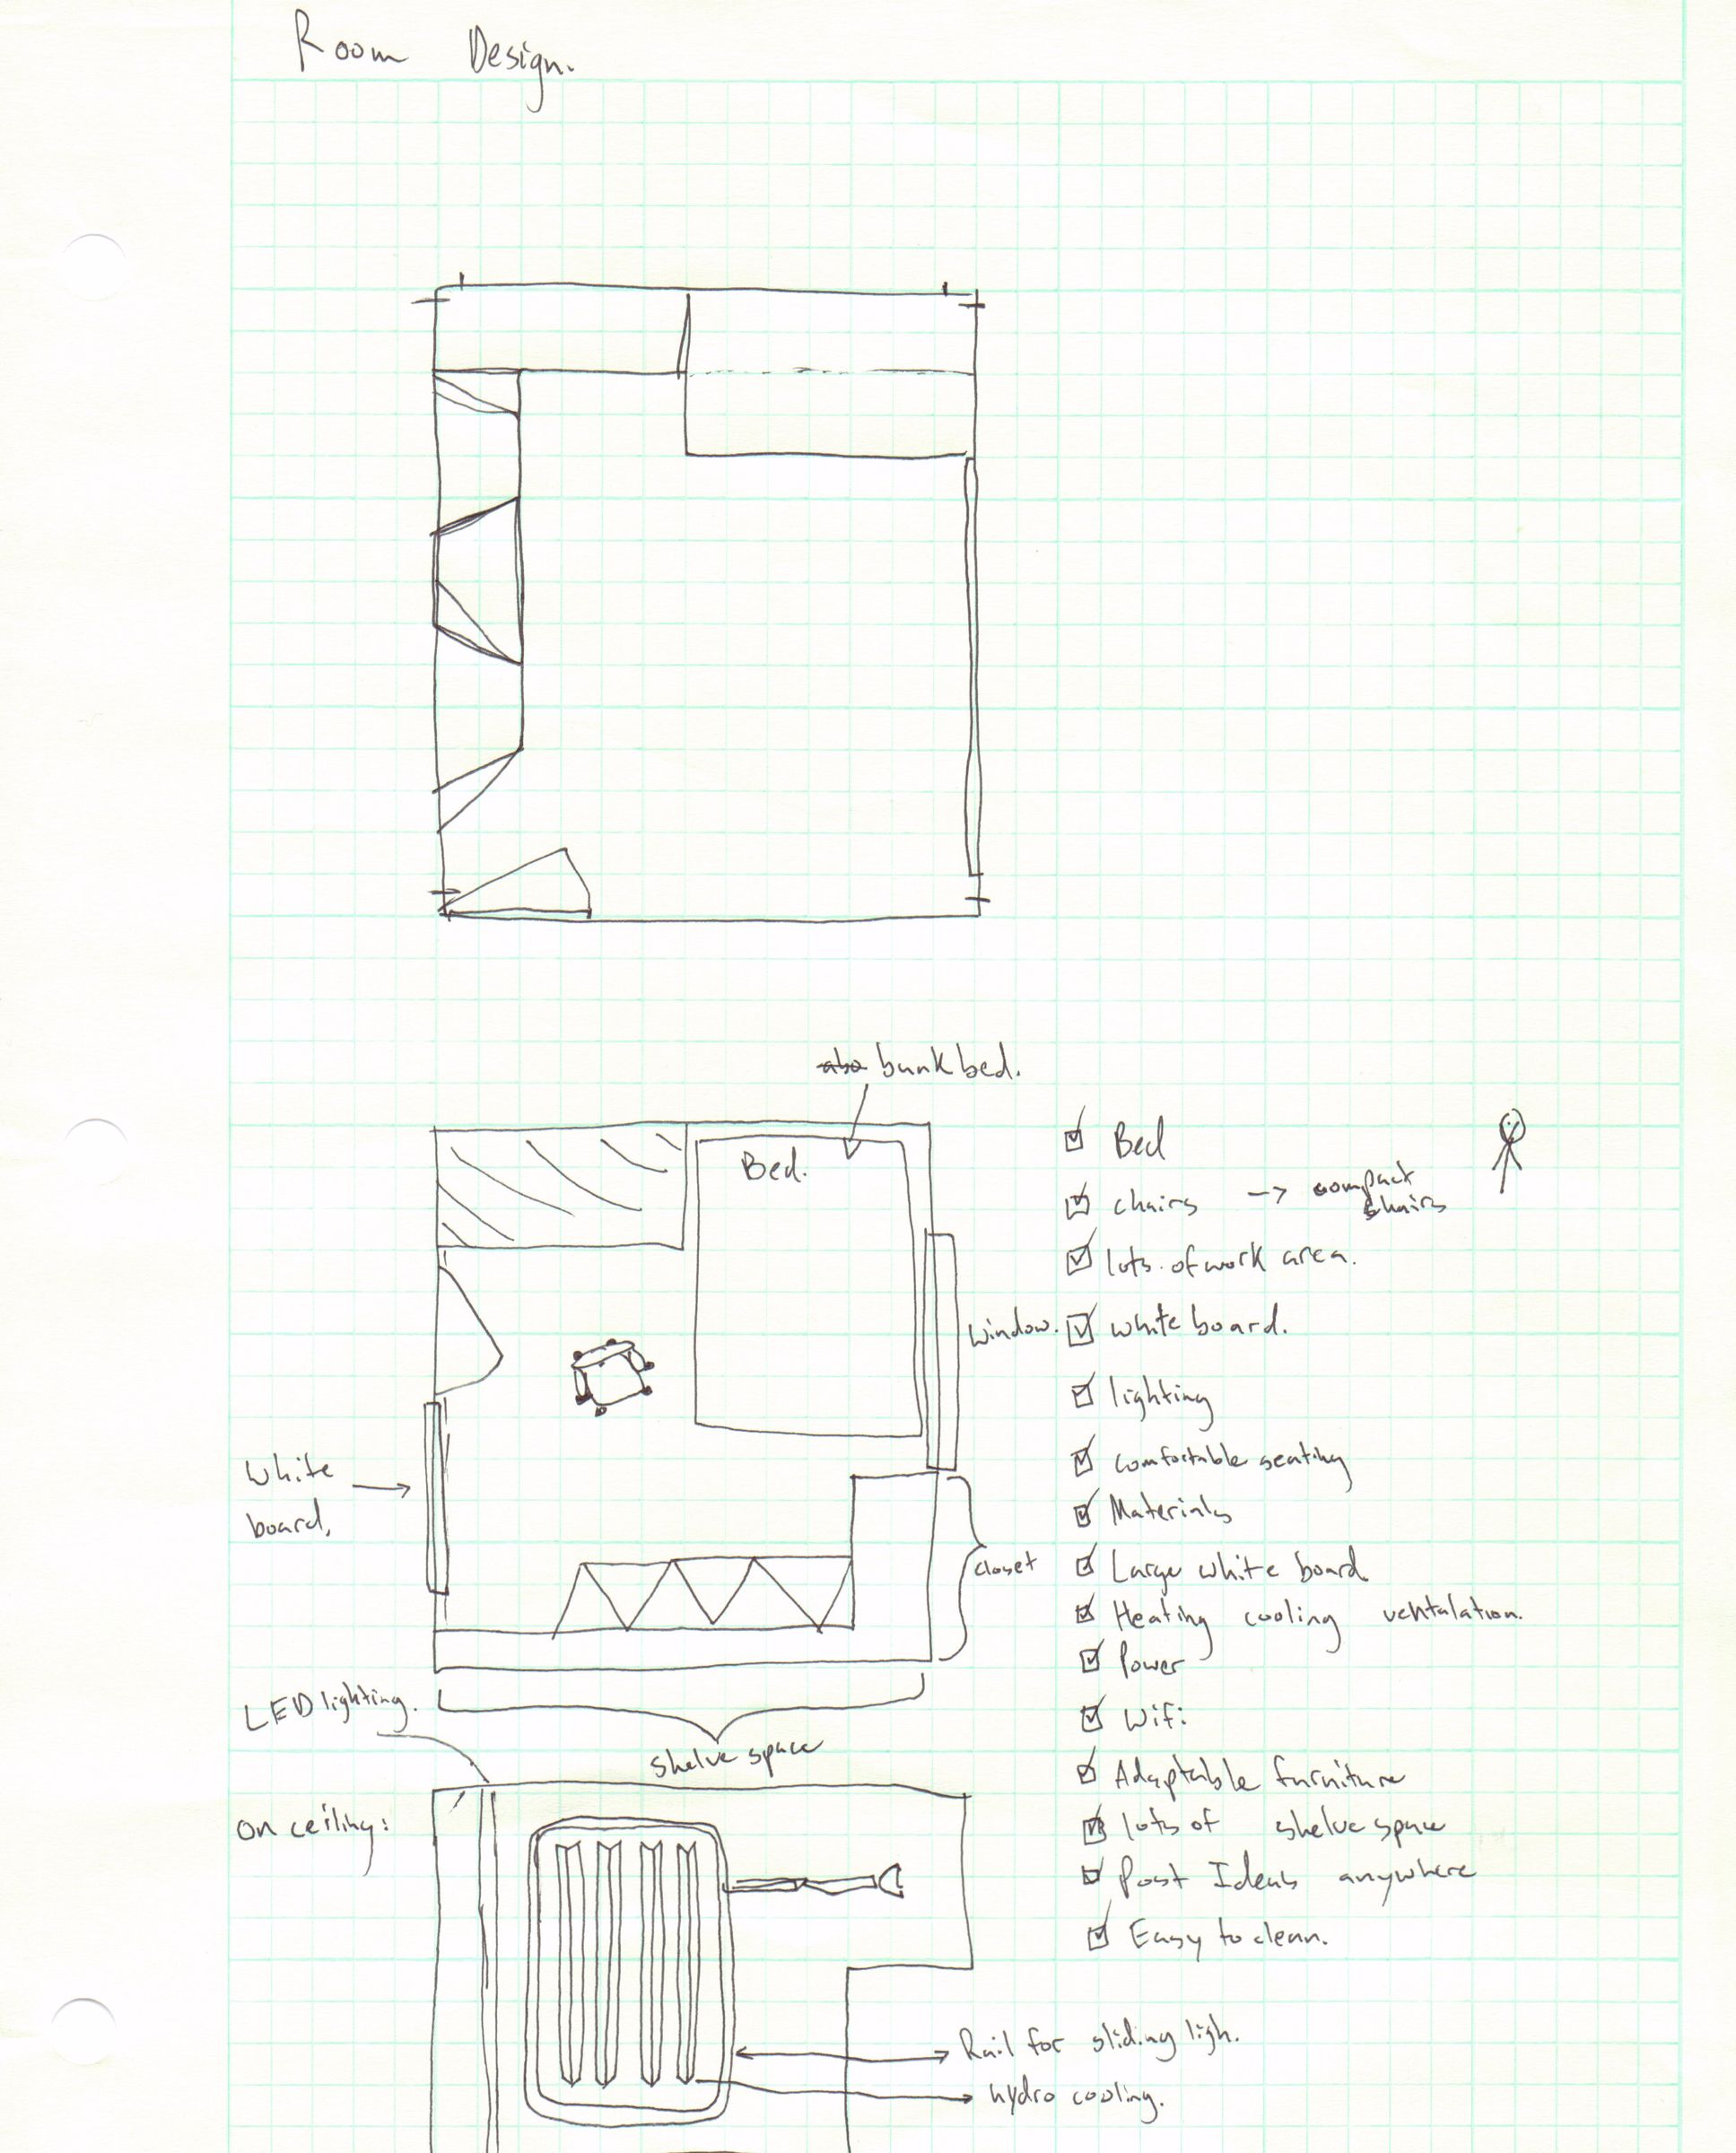 Room Design.
bunk bed.
Bed.
Window.
White
board,
closet
shelve space
LED lighting.
On ceiling:
Rail for sliding ligh.
hydro cooling.
Bed
chairs -> compact
chairs
lots of work area.
white board.
lighting
comfortable seating
Materials
Large white board
Heating cooling ventalation.
Power
Wifi
Adaptable furniture
lots of shelve space
Post Ideas anywhere
Easy to clean.